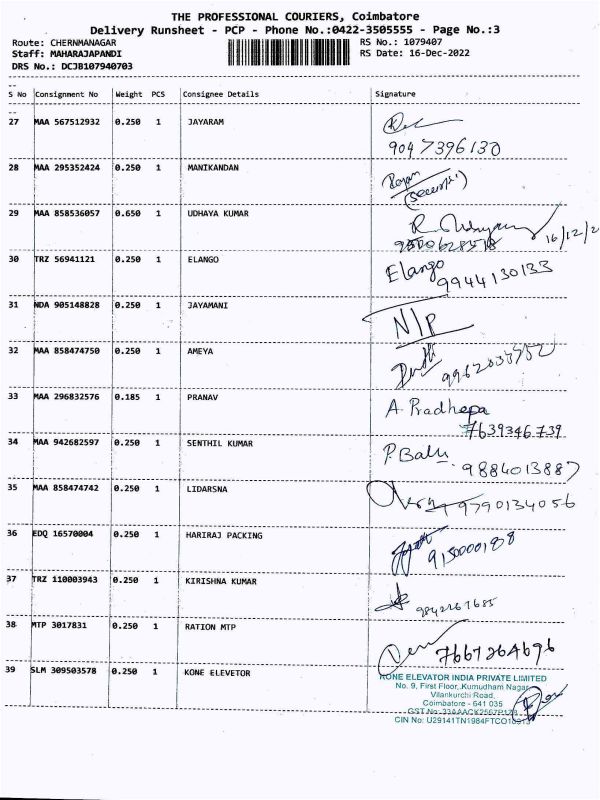 THE PROFESSIONAL COURIERS, Coimbatore
Delivery Runsheet - PCP - Phone No.:0422-3505555 - Page No.:3
Route: CHERNMANAGAR RS No.: 1079407
Staff: MAHARAJAPANDI RS Date: 16-Dec-2022
DRS No.: DCJB107940703
S No Consignment No Weight PCS Consignee Details Signature
27 MAA 567512932 0.250 1 JAYARAM
9047396130
28 MAA 295352424 0.250 1 MANIKANDAN
29 MAA 858536057 0.650 1 UDHAYA KUMAR
16/12/2
30 TRZ 56941121 0.250 1 ELANGO Elango
9944130133
31 NDA 905148828 0.250 1 JAYAMANI N/P
32 MAA 858474750 0.250 1 AMEYA
33 MAA 296832576 0.185 1 PRANAV A. Pradhepa
7639346739
34 MAA 942682597 0.250 1 SENTHIL KUMAR P. Balu
9884013887
35 MAA 858474742 0.250 1 LIDARSNA 9790134056
36 EDQ 16570004 0.250 1 HARIRAJ PACKING
37 TRZ 110003943 0.250 1 KIRISHNA KUMAR
38 MTP 3017831 0.250 1 RATION MTP
7667264696
39 SLM 309503578 0.250 1 KONE ELEVETOR
KONE ELEVATOR INDIA PRIVATE LIMITED
No. 9, First Floor, Kumudham Nagar,
Vilankurchi Road,
Coimbatore - 641 035
CIN No: U29141TN1984FTCO